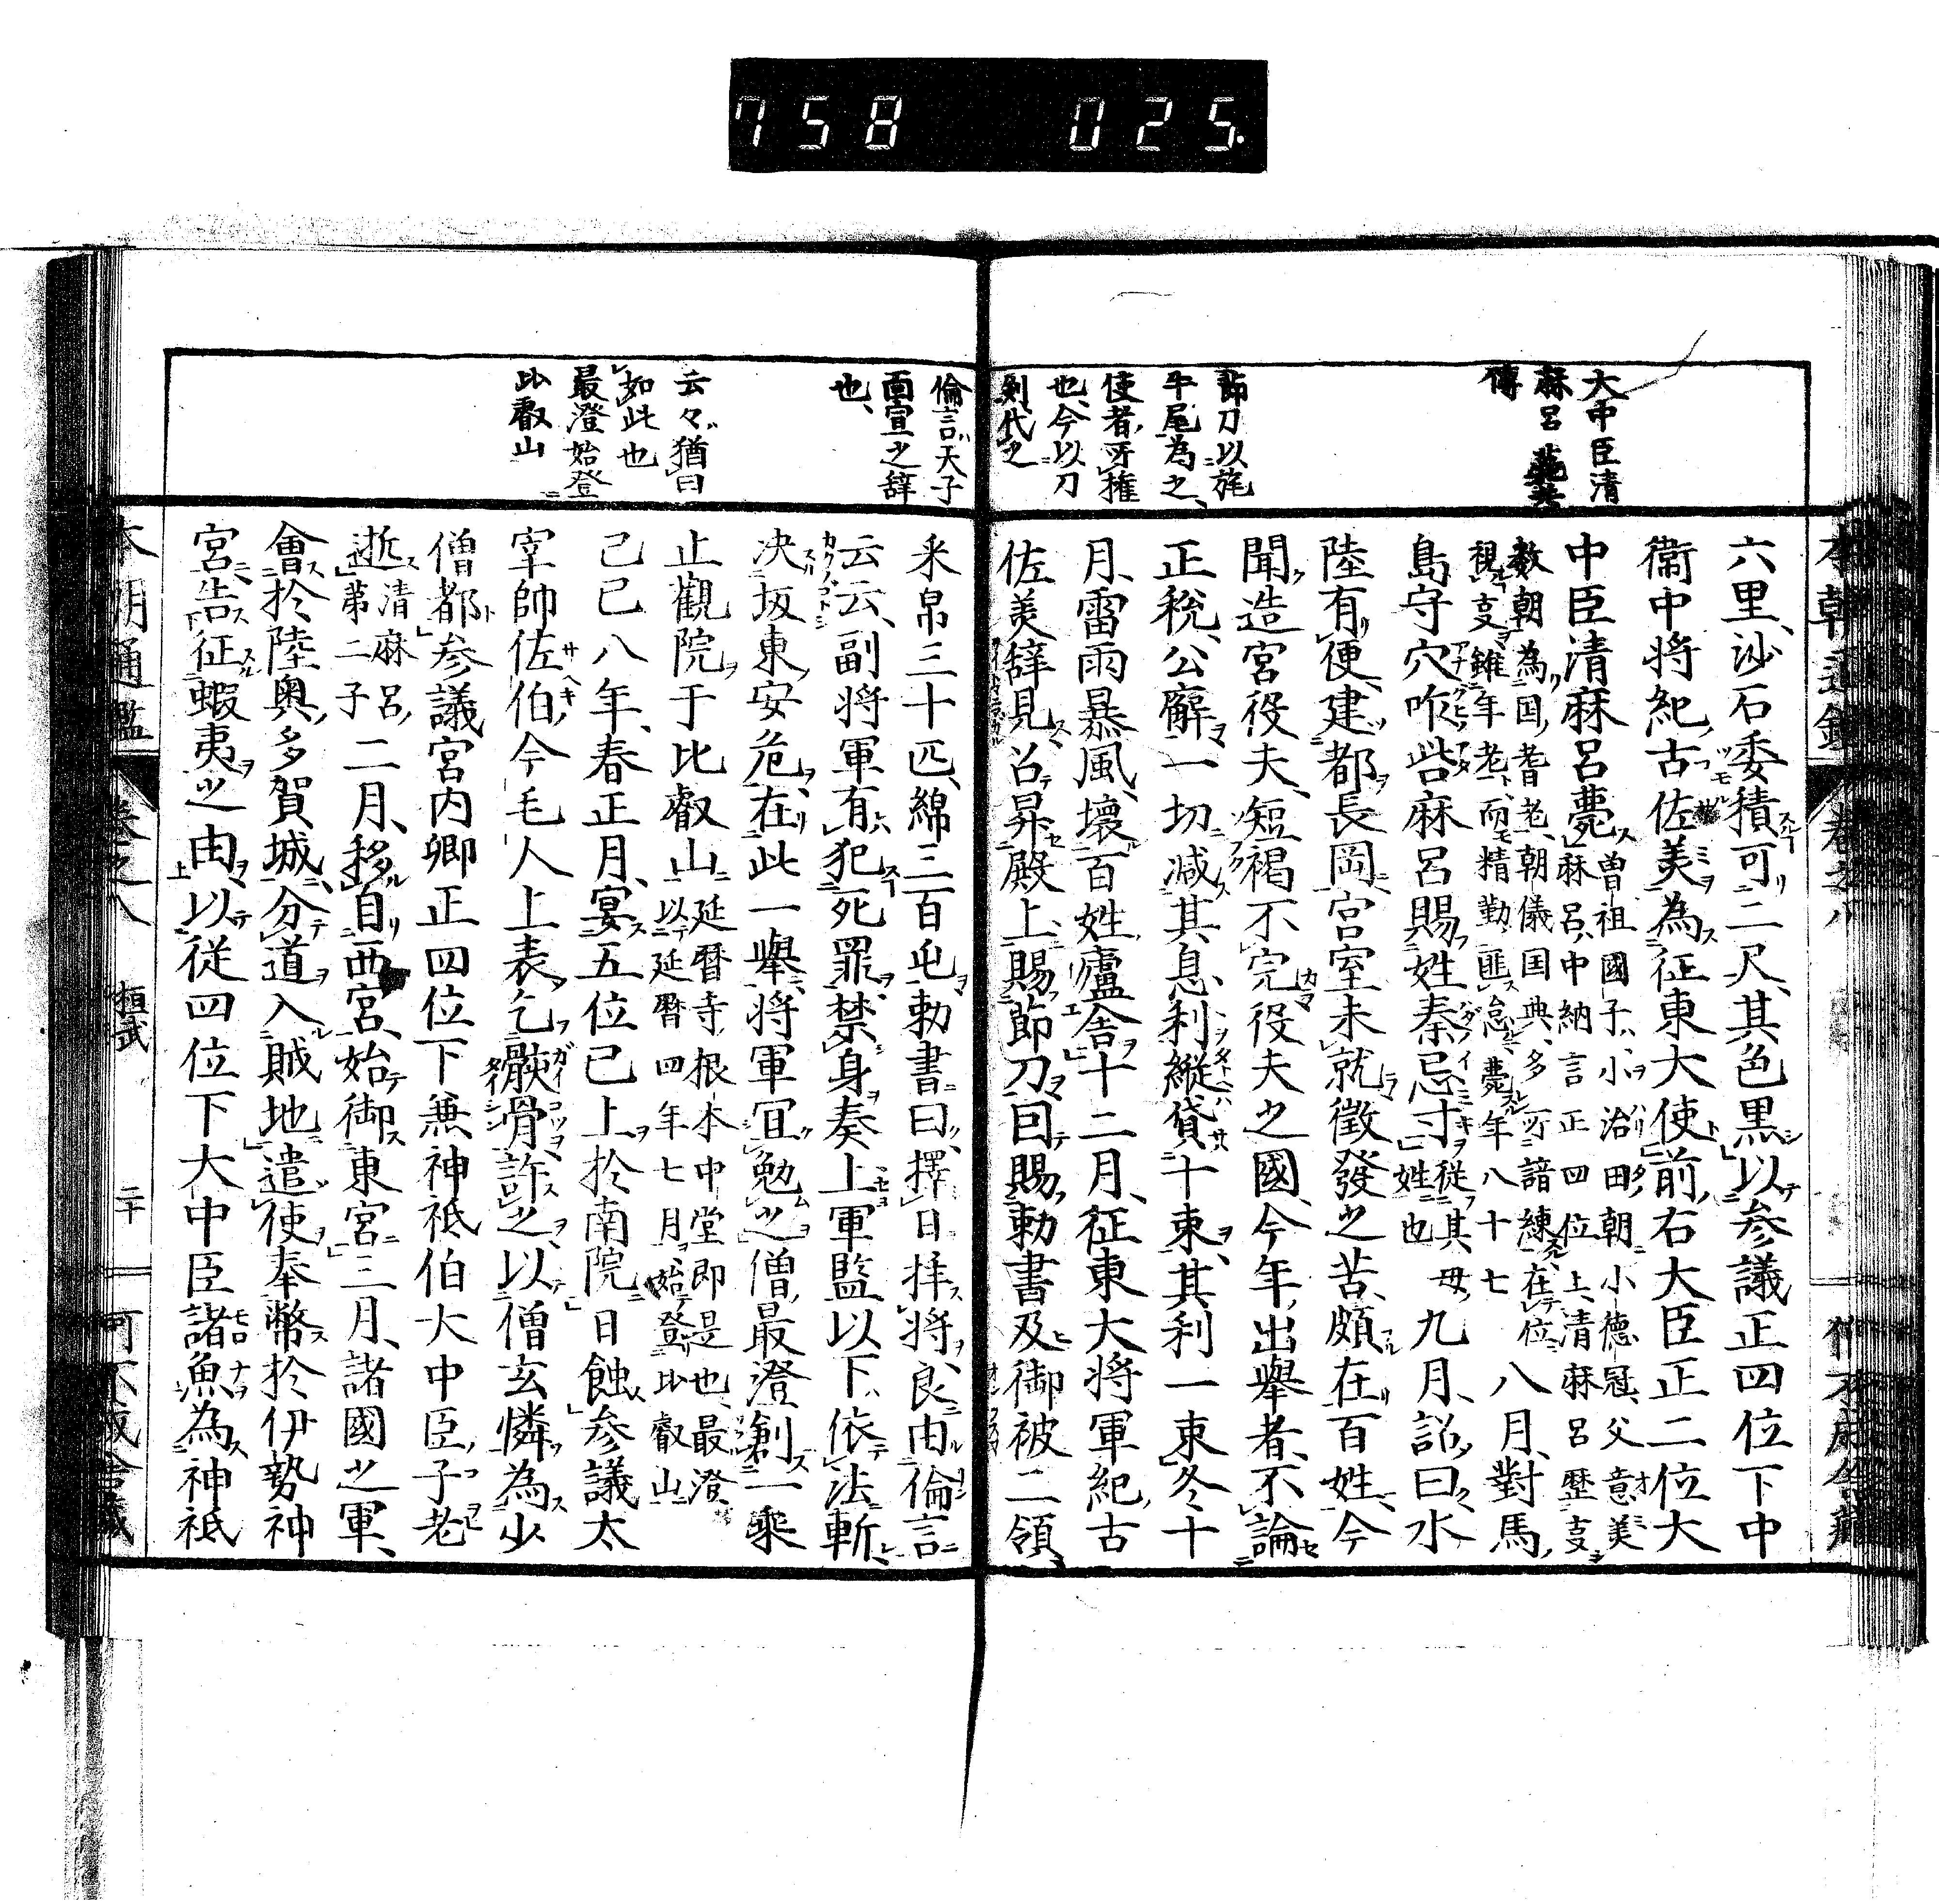 758 025.
大中臣清
麻呂薨其
傳
節刀以旄
牛尾為之、
使者所擁
也、今以刀
剣代之
六里、沙石委積可二尺、其色黒、以参議正四位下中
衛中将紀古佐美為征東大使、前右大臣正二位大
中臣清麻呂薨
曽祖國子、小治田朝小徳冠、父意美
麻呂、中納言正四位上、清麻呂歴支
数朝為国耆老、朝儀国典、多所諳練、在位
視支雖年老、而精勤匪怠、薨年八十七
八月、對馬
島守穴咋呰麻呂賜姓秦忌寸
従其母
姓也
九月、詔曰水
陸有便、建都長岡、宮室未就、徵發之苦、頗在百姓、今
聞、造宮役夫、短褐不完、役夫之國、今年出舉者、不論
正税、公廨、一切減其息利、縦貸十束、其利一束、冬十
月、雷雨暴風、壞百姓廬舎、十二月、征東大将軍紀古
佐美辞見、召昇殿上、賜節刀、因賜勅書及御被二領
倫言天子
面宣之辞
也、
云々猶曰
如此也
最澄始登
比叡山
釆帛三十匹、綿三百屯、勅書曰、擇日拝将、良由倫言
云云、副将軍有犯死罪、禁身奏上、軍監以下、依法斬
决、坂東安危、在此一舉、将軍宜勉之、僧最澄創一乗
止觀院于比叡山
延暦寺根本中堂即是也、最澄
以延暦四年七月、始登比叡山
己巳八年、春正月、宴五位已上於南院、日蝕、参議太
宰帥佐伯今毛人上表乞骸骨、許之、以僧玄憐為少
僧都、参議宮内卿正四位下兼神祗伯大中臣子老
逝
清麻呂
第二子
二月、移自西宮、始御東宮、三月、諸國之軍、
會於陸奥多賀城、分道入賊地、遣使奉幣於伊勢神
宮、告征蝦夷之由、以従四位下大中臣諸魚為神祗
本朝通鑑 巻之八 桓武 二十